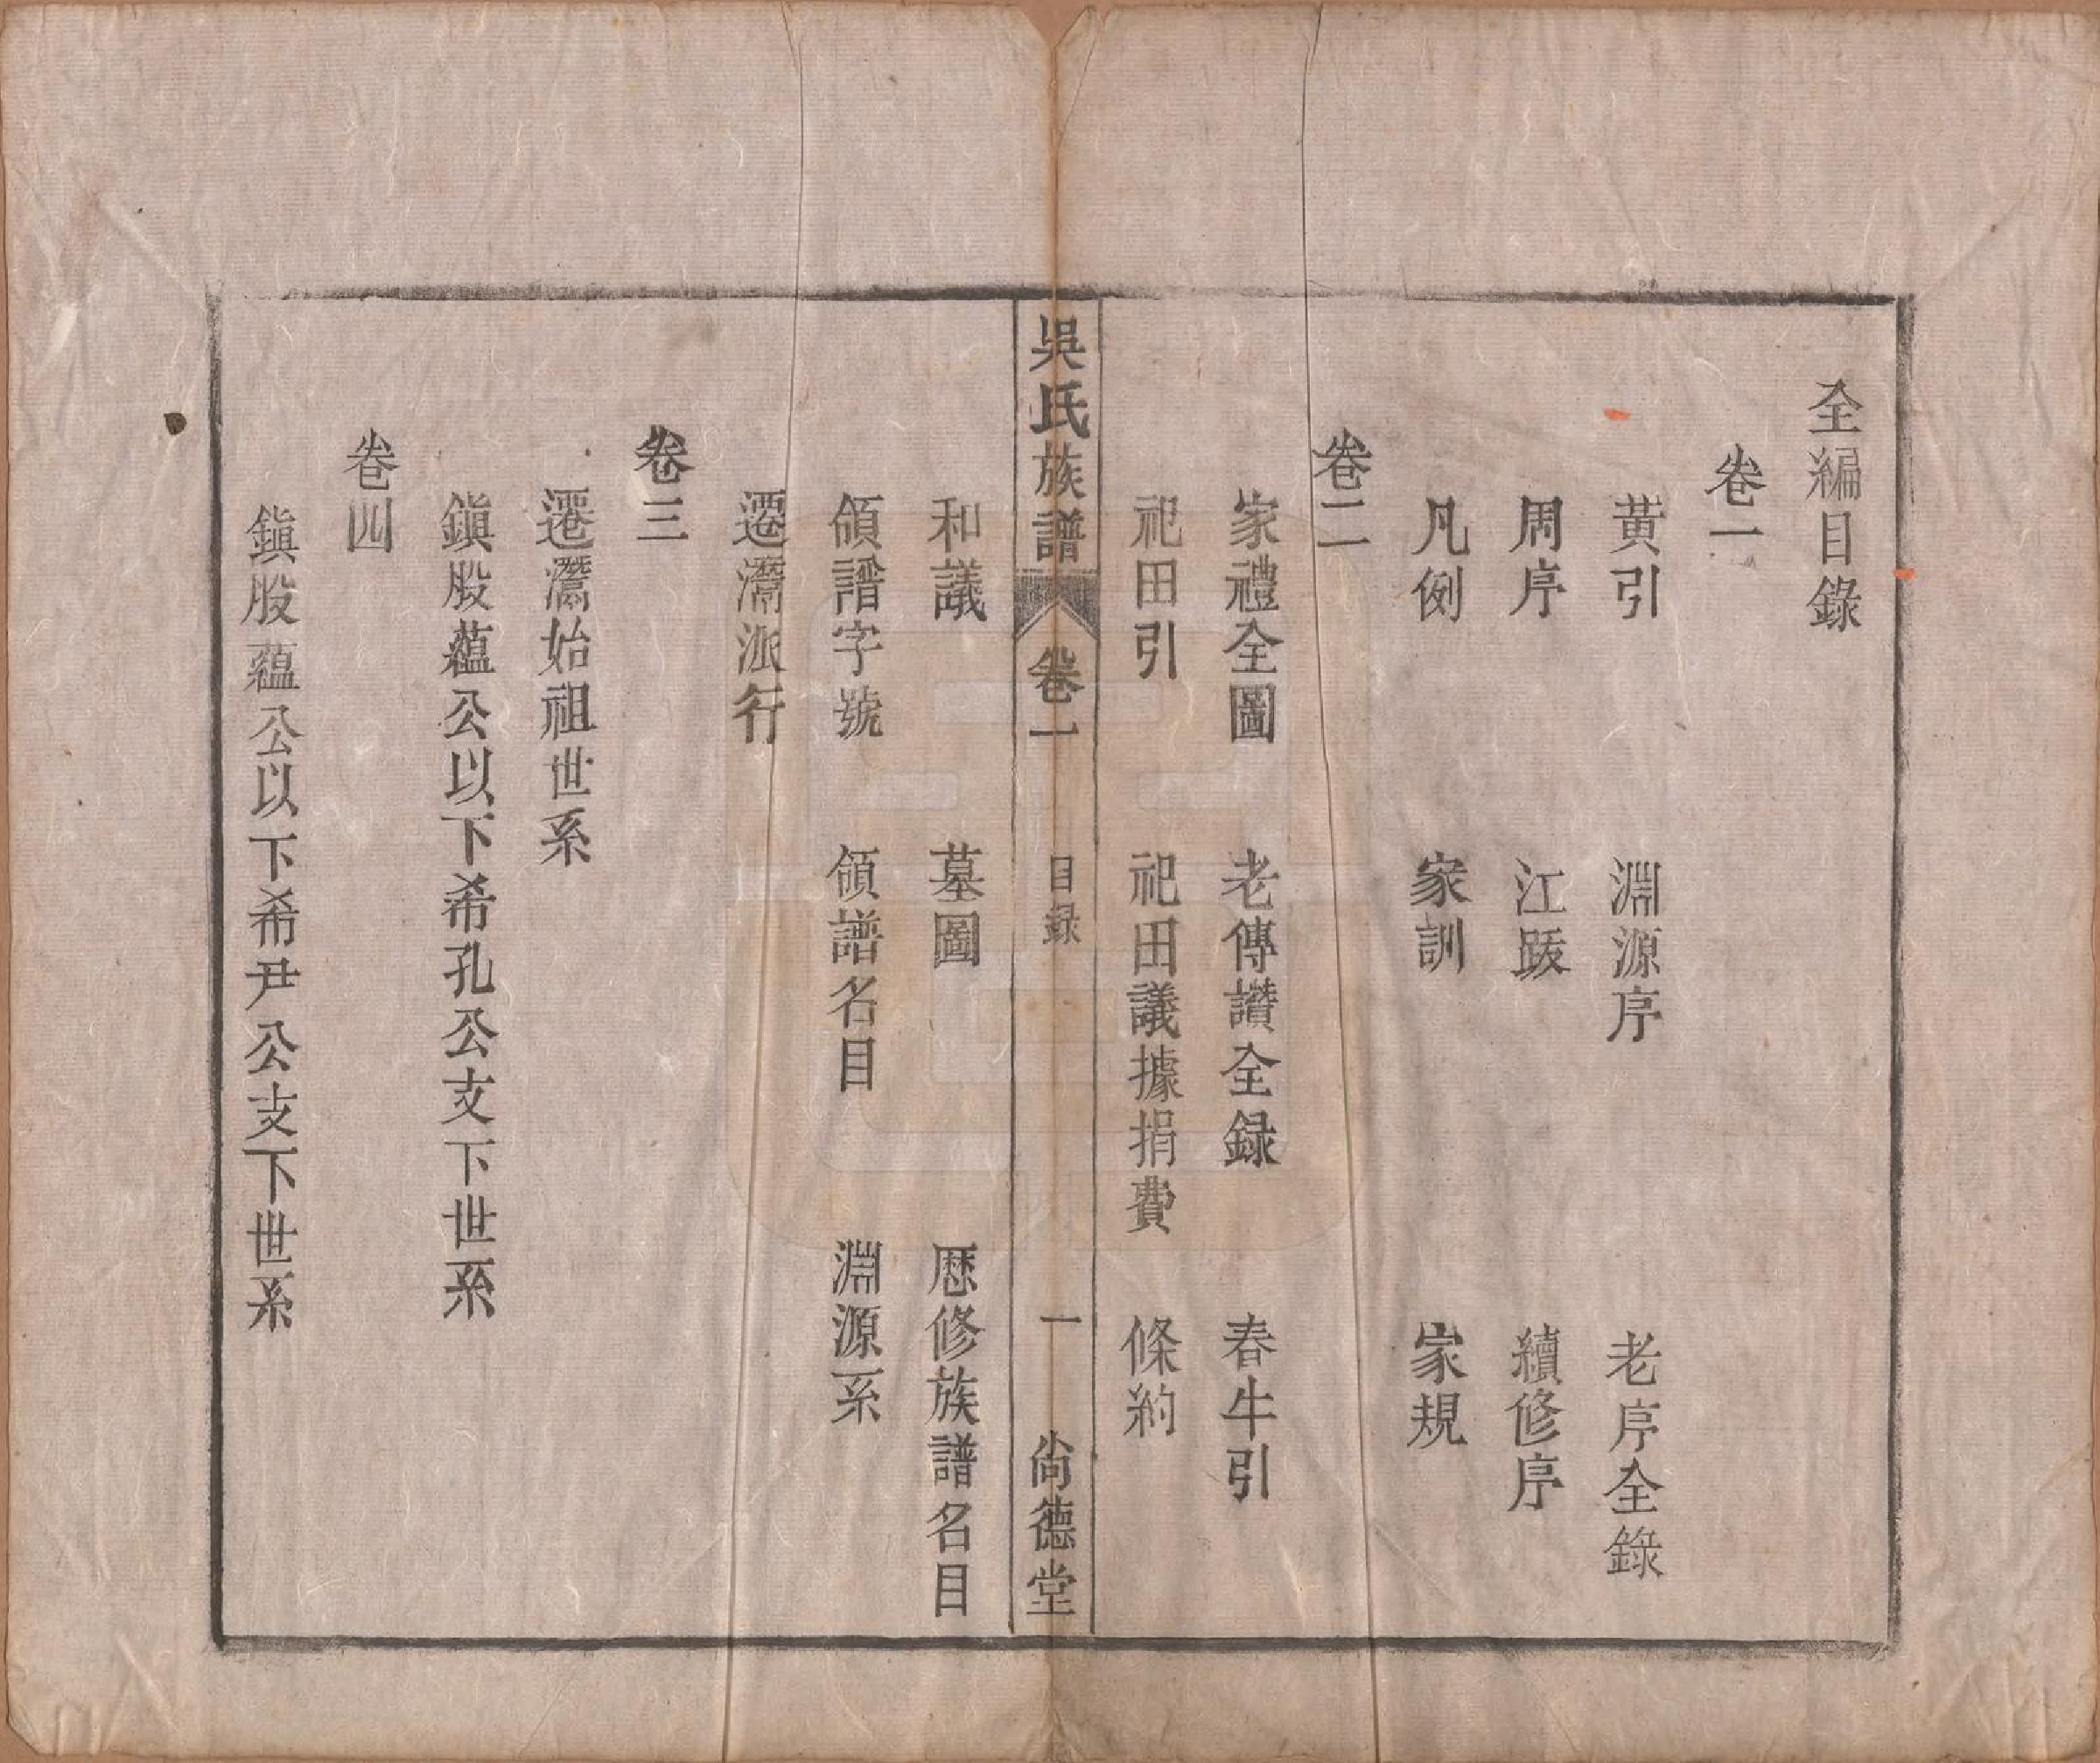 全編目錄
卷一
黃引　淵源序　老序全錄
周序　江跋　續修序
凡例　家訓　家規
卷二
家禮全圖　老傳讚全録　春牛引
祀田引　祀田議據捐費　條約
吳氏族譜　卷一　目録　一　尚德堂
和議　墓圖　厯修族譜名目
領譜字號　領譜名目　淵源系
遷灊派行
卷三
遷灊始祖世系
鎭股蘊公以下希孔公支下世系
卷四
鎭股蘊公以下希尹公支下世系